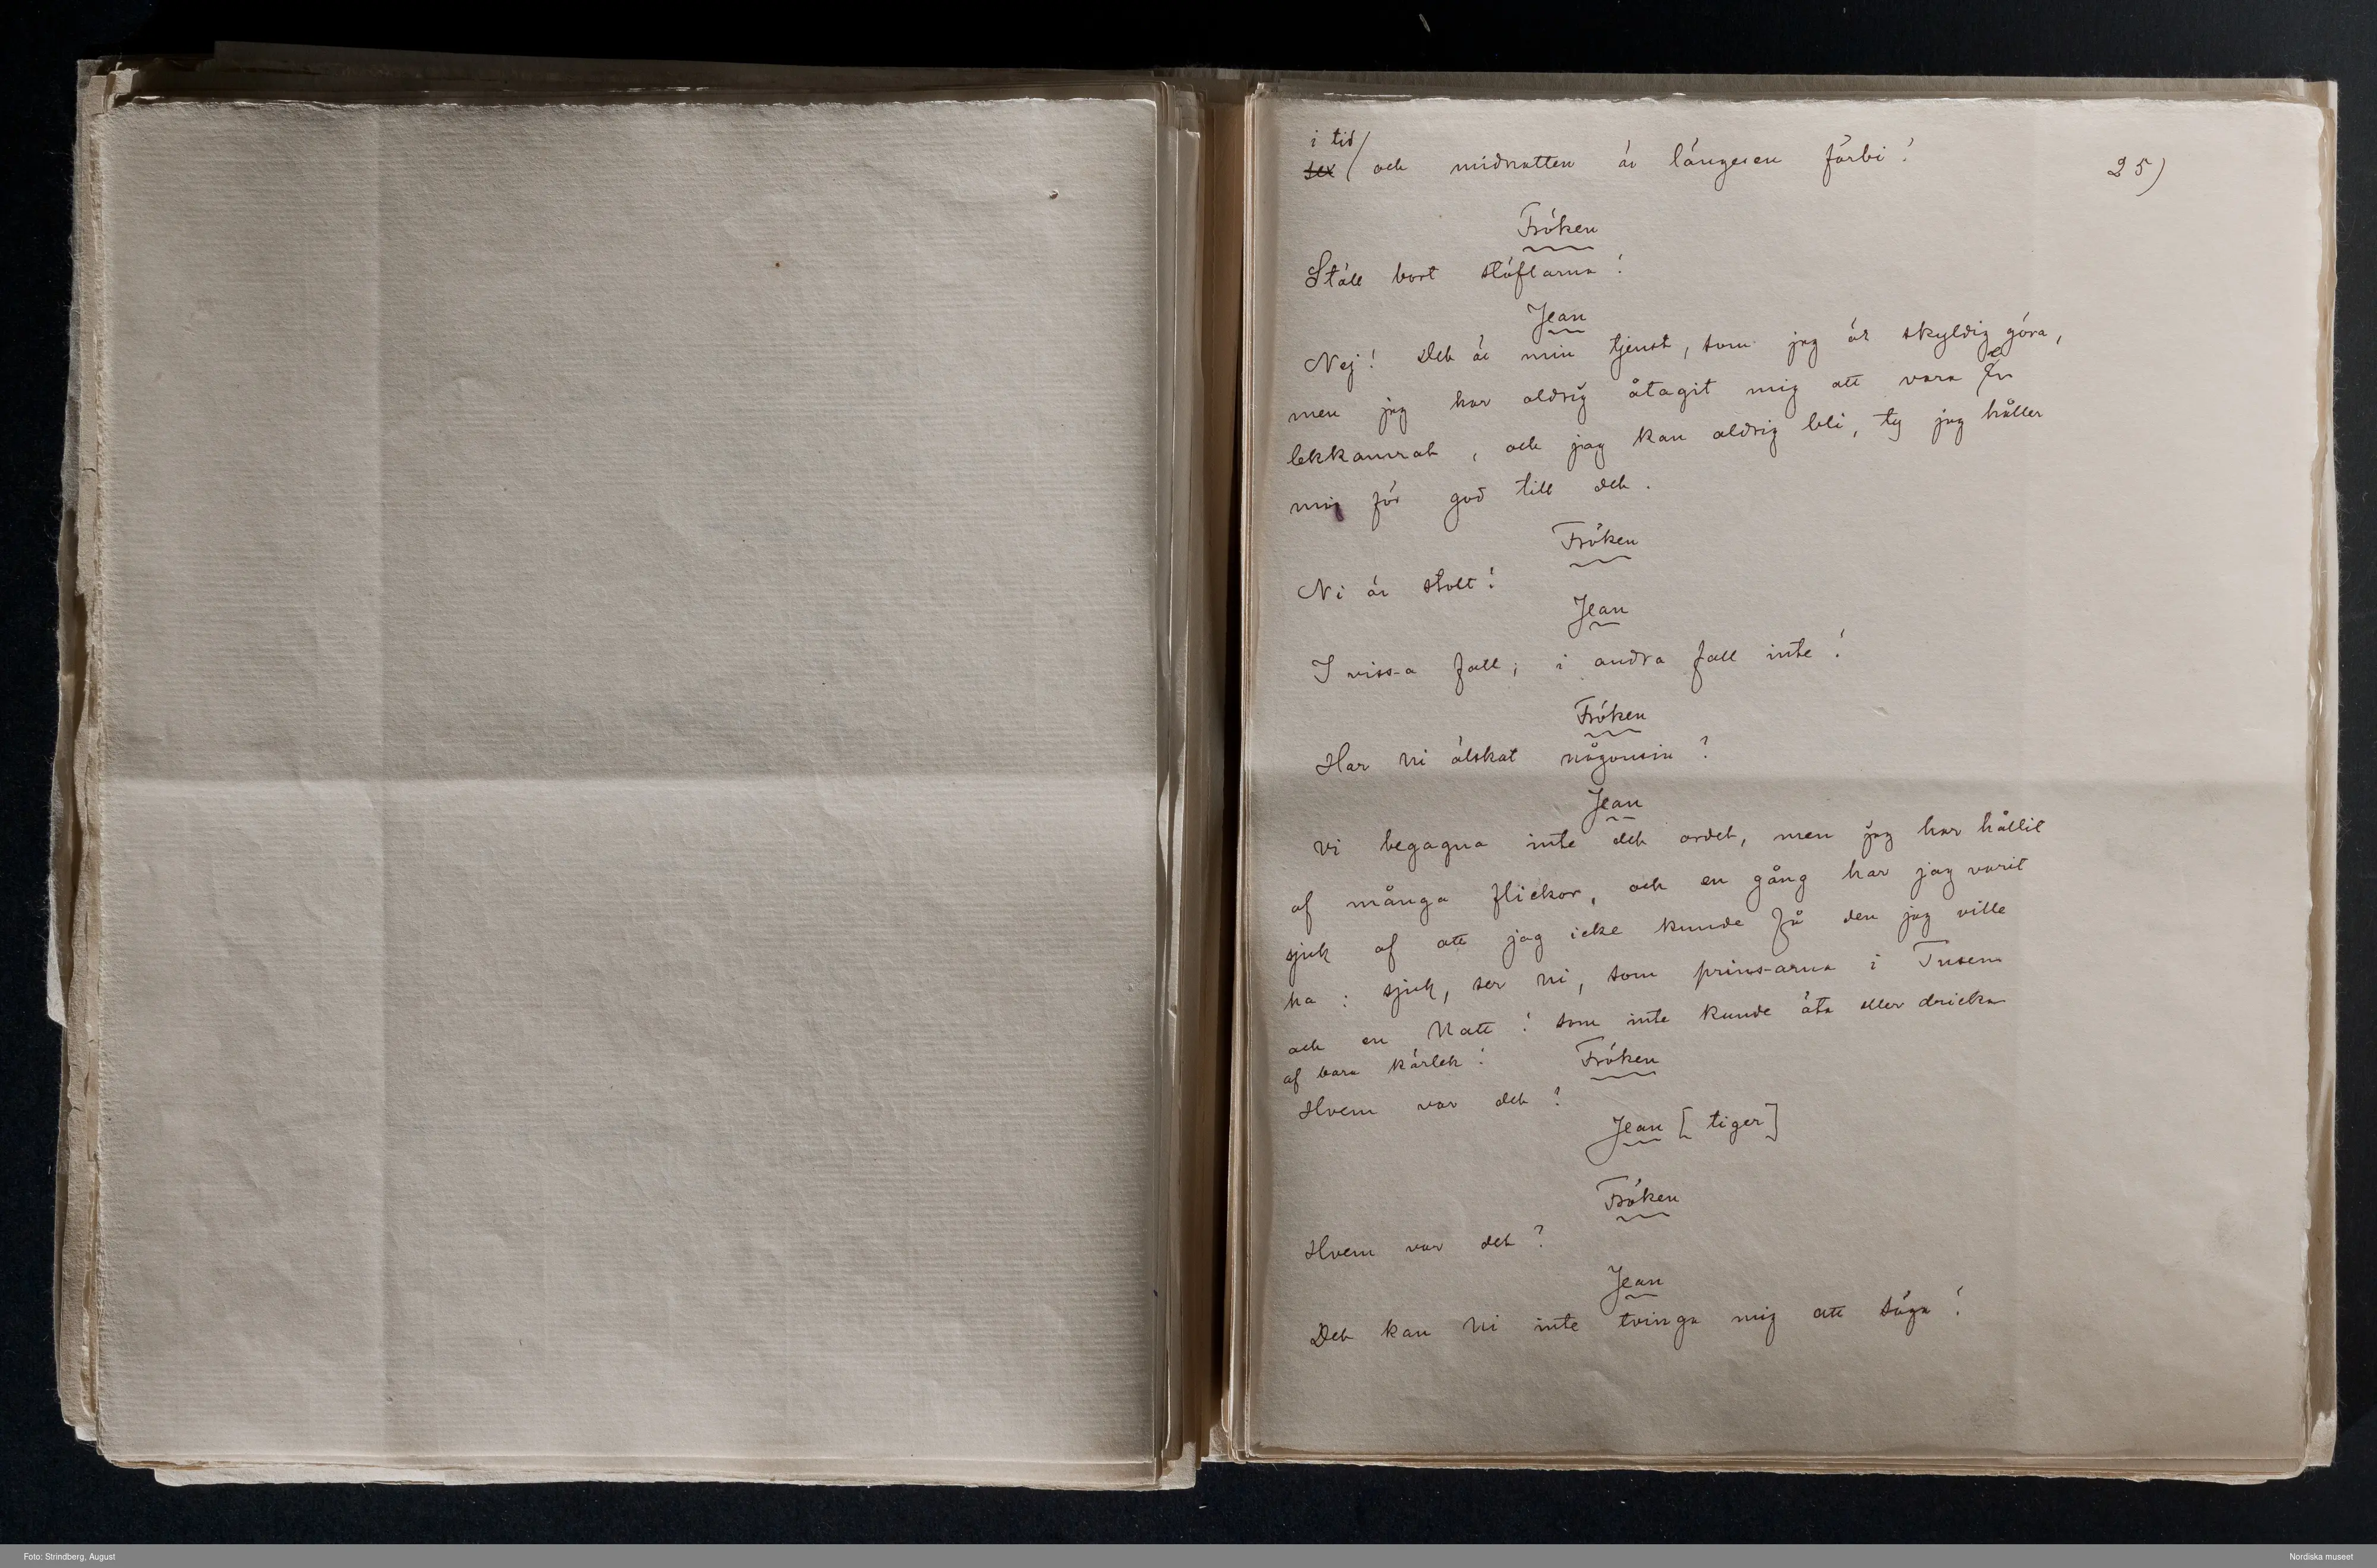 i tid
sex / och midnatten är längesen förbi!
25)
Fröken
Ställ bort stöflarna!
Jean
Nej! Det är min tjenst, som jag är skyldig göra,
men jag har aldrig åtagit mig att vara Er
lekkamrat, och jag kan aldrig bli, ty jag håller
mig för god till det.
Fröken
Ni är stolt!
Jean
I vissa fall; i andra fall inte!
Fröken
Har Ni älskat någonsin?
Jean
Vi begagna inte det ordet, men jag har hållit
af många flickor, och en gång har jag varit
sjuk af att jag icke kunde få den jag ville
ha: sjuk, ser Ni, som prinsarna i Tusen
och en Natt! som inte kunde äta eller dricka
af bara kärlek!
Fröken
Hvem var det?
Jean [tiger]
Fröken
Hvem var det?
Jean
Det kan Ni inte tvinga mig att säga!
Foto: Strindberg, August
Nordiska museet